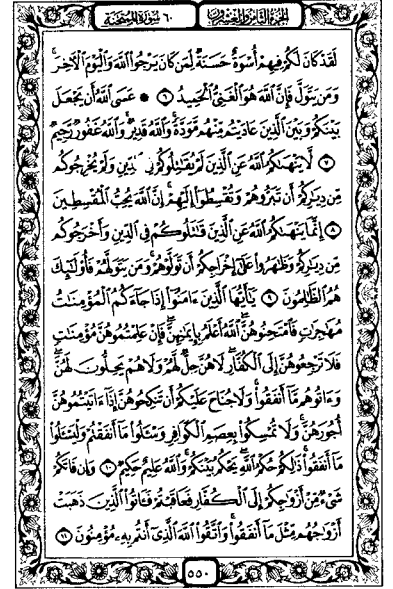 الجزء الثامن والعشرون ٦٠ سورة الممتحنة
لَقَدْ كَانَ لَكُمْ فِيهِمْ أُسْوَةٌ حَسَنَةٌ لِّمَن كَانَ يَرْجُوا۟ ٱللَّهَ وَٱلْيَوْمَ ٱلْءَاخِرَ ۚ
وَمَن يَتَوَلَّ فَإِنَّ ٱللَّهَ هُوَ ٱلْغَنِىُّ ٱلْحَمِيدُ ٦ ۞ عَسَى ٱللَّهُ أَن يَجْعَلَ
بَيْنَكُمْ وَبَيْنَ ٱلَّذِينَ عَادَيْتُم مِّنْهُم مَّوَدَّةً ۚ وَٱللَّهُ قَدِيرٌ ۚ وَٱللَّهُ غَفُورٌ رَّحِيمٌ
٧ لَّا يَنْهَىٰكُمُ ٱللَّهُ عَنِ ٱلَّذِينَ لَمْ يُقَٰتِلُوكُمْ فِى ٱلدِّينِ وَلَمْ يُخْرِجُوكُم
مِّن دِيَٰرِكُمْ أَن تَبَرُّوهُمْ وَتُقْسِطُوٓا۟ إِلَيْهِمْ ۚ إِنَّ ٱللَّهَ يُحِبُّ ٱلْمُقْسِطِينَ
٨ إِنَّمَا يَنْهَىٰكُمُ ٱللَّهُ عَنِ ٱلَّذِينَ قَٰتَلُوكُمْ فِى ٱلدِّينِ وَأَخْرَجُوكُم
مِّن دِيَٰرِكُمْ وَظَٰهَرُوا۟ عَلَىٰٓ إِخْرَاجِكُمْ أَن تَوَلَّوْهُمْ ۚ وَمَن يَتَوَلَّهُمْ فَأُو۟لَٰٓئِكَ
هُمُ ٱلظَّٰلِمُونَ ٩ يَٰٓأَيُّهَا ٱلَّذِينَ ءَامَنُوٓا۟ إِذَا جَآءَكُمُ ٱلْمُؤْمِنَٰتُ
مُهَٰجِرَٰتٍ فَٱمْتَحِنُوهُنَّ ۖ ٱللَّهُ أَعْلَمُ بِإِيمَٰنِهِنَّ ۖ فَإِنْ عَلِمْتُمُوهُنَّ مُؤْمِنَٰتٍ
فَلَا تَرْجِعُوهُنَّ إِلَى ٱلْكُفَّارِ ۖ لَا هُنَّ حِلٌّ لَّهُمْ وَلَا هُمْ يَحِلُّونَ لَهُنَّ ۖ
وَءَاتُوهُم مَّآ أَنفَقُوا۟ ۚ وَلَا جُنَاحَ عَلَيْكُمْ أَن تَنكِحُوهُنَّ إِذَآ ءَاتَيْتُمُوهُنَّ
أُجُورَهُنَّ ۚ وَلَا تُمْسِكُوا۟ بِعِصَمِ ٱلْكَوَافِرِ وَسْـَٔلُوا۟ مَآ أَنفَقْتُمْ وَلْيَسْـَٔلُوا۟
مَآ أَنفَقُوا۟ ۚ ذَٰلِكُمْ حُكْمُ ٱللَّهِ ۖ يَحْكُمُ بَيْنَكُمْ ۚ وَٱللَّهُ عَلِيمٌ حَكِيمٌ ١٠ وَإِن فَاتَكُمْ
شَىْءٌ مِّنْ أَزْوَٰجِكُمْ إِلَى ٱلْكُفَّارِ فَعَاقَبْتُمْ فَـَٔاتُوا۟ ٱلَّذِينَ ذَهَبَتْ
أَزْوَٰجُهُم مِّثْلَ مَآ أَنفَقُوا۟ ۚ وَٱتَّقُوا۟ ٱللَّهَ ٱلَّذِىٓ أَنتُم بِهِۦ مُؤْمِنُونَ ١١
٥٥٠